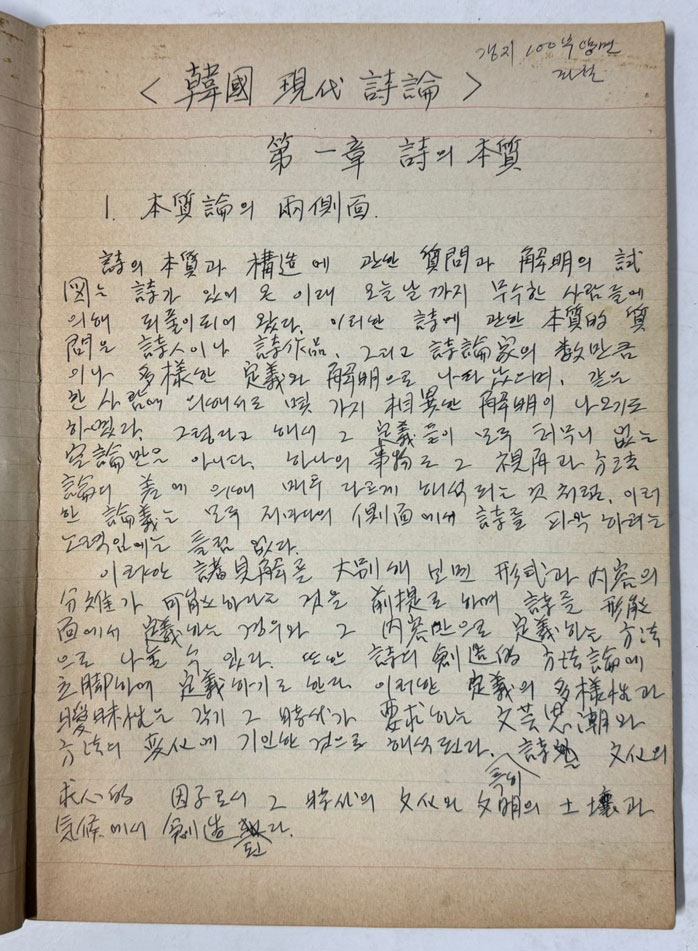 갱지 100부
< 韓國 現代 詩論 >
第 一章 詩의 本質
1. 本質論의 兩側面.
詩의 本質과 構造에 관한 質問과 解明의 試
図는 詩가 있어 온 이래 오늘날까지 무수한 사람들에
의해 되풀이되어 왔다. 이러한 詩에 관한 本質的 質
問은 詩人이나 詩作品, 그리고 詩論家의 数만큼
이나 多樣한 定義와 解明으로 나타났으며, 같은
한 사람에 의해서도 몇 가지 相異한 解明이 나오기도
하였다. 그렇다고 해서 그 定義들이 모두 터무니 없는
空論만은 아니다. 하나의 事物도 그 視角과 方法
論의 차이에 의해 매우 다르게 해석되는 것처럼, 이러
한 論義는 모두 저마다의 側面에서 詩를 파악하려는
노력임에는 틀림 없다.
이러한 諸見解를 大別해 보면 形式과 内容의
分離가 可能하다는 것을 前提로 하여 詩를 形態
面에서 定義하는 경우와 그 内容만으로 定義하는 方法
으로 나눌 수 있다. 또한 詩의 創造的 方法論에
立脚하여 定義하기도 한다. 이러한 定義의 多樣性과
曖昧性은 각기 그 時代가 要求하는 文芸思潮와
方法의 変化에 기인한 것으로 해석된다. 詩는 文化의
특히
求心的 因子로서 그 時代의 文化와 文明의 土壤과
気候에서 創造된다.